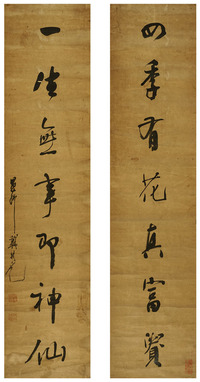 四季有花真富貴
一生無事即神仙